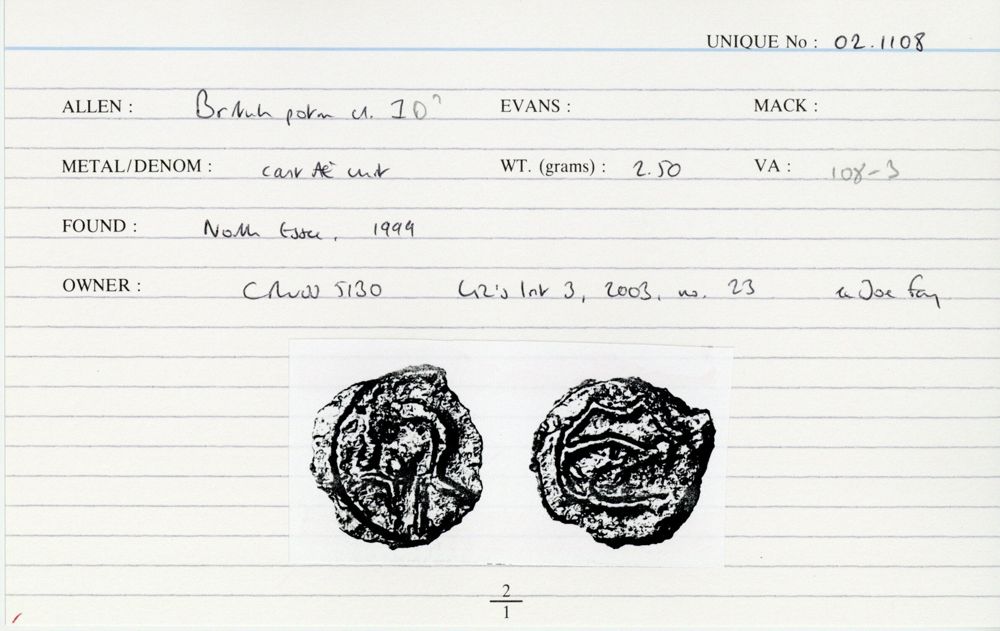 UNIQUE No : 02.1108
ALLEN : British potin cl. 1D? EVANS : MACK :
METAL/DENOM : cast Æ unit WT. (grams) : 2.50 VA : 108-3
FOUND : North Essex, 1999
OWNER : CR 5130 List 3, 2003, no. 23 Joe Fay
2
1